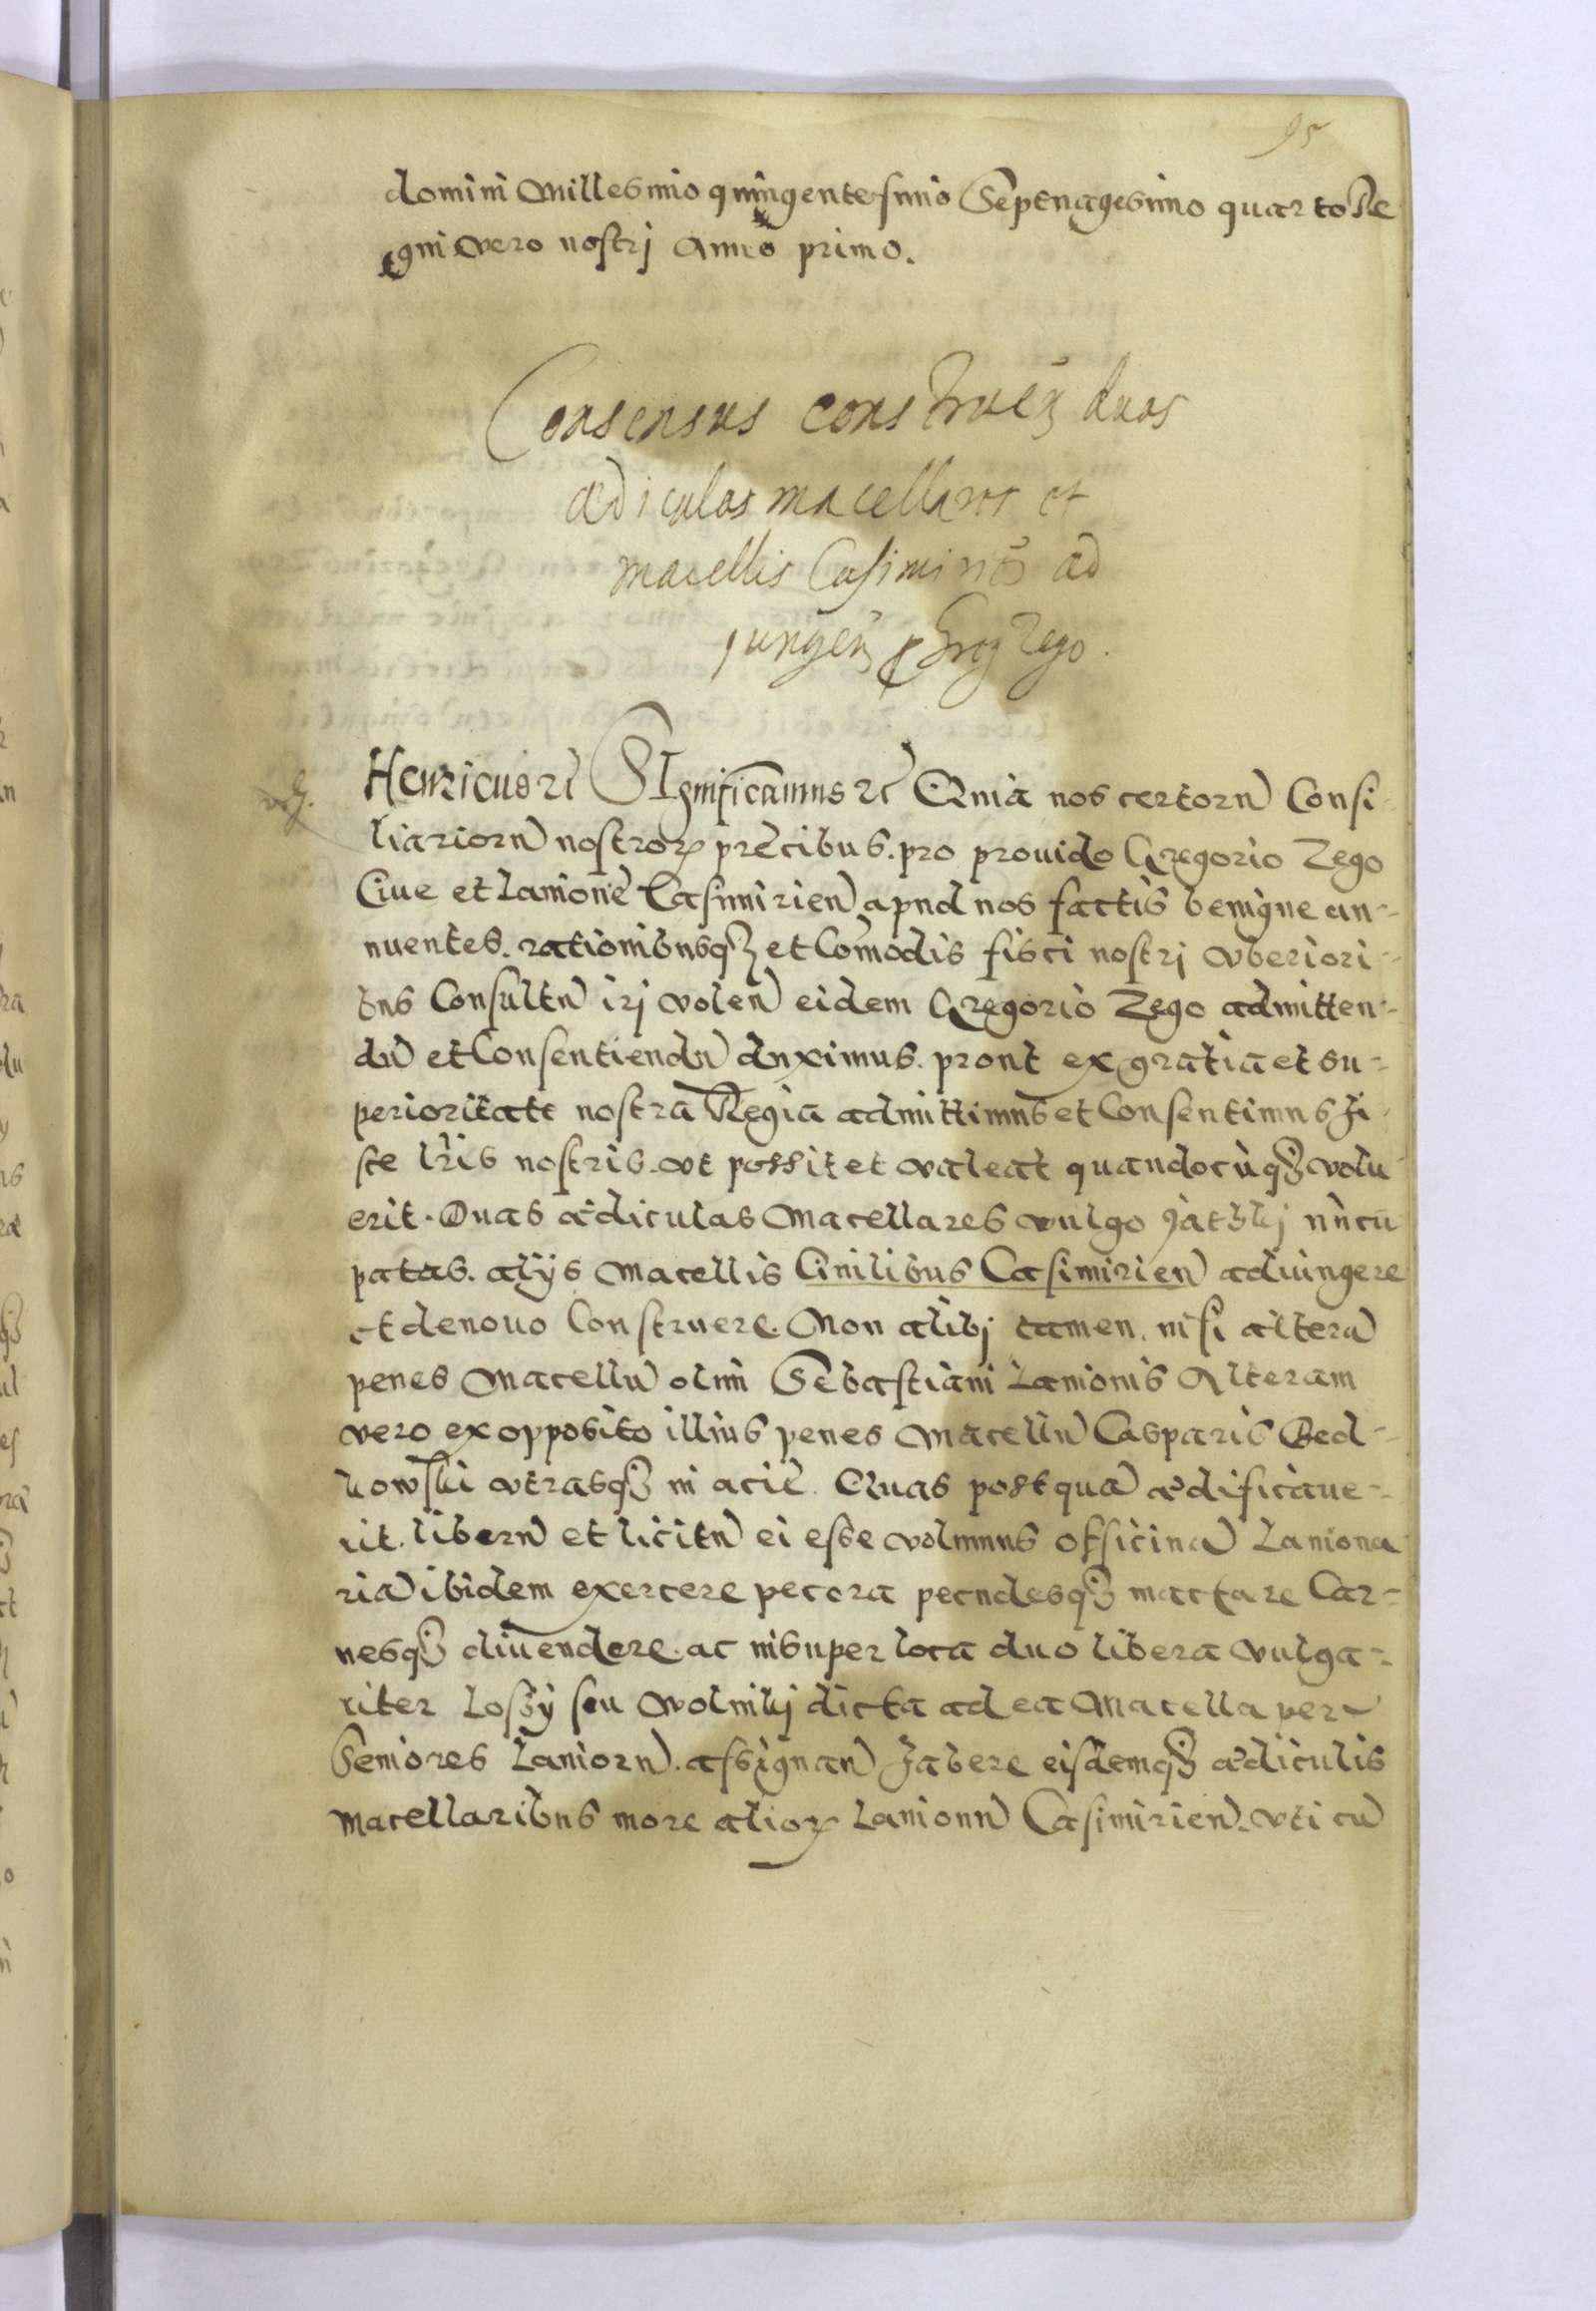 95
domini Millesimo quingentesimo Septuagesimo quarto Re
gni vero nostrj Anno primo.
Consensus construen̄ duas
ædiculas macellares et
macellis Casimirień ad
jungen̄ Greg Zego.
Henricus etc Significamus etc Quia nos certorū Consi-
liariorū nostror̄ precibus. pro prouido Gregorio Zego
Ciue et Lanione Casimirień apud nos factis benigne an-
nuentes. rationibusqʒ et Comodis fisci nostrj vberiori-
bus Consultū irj volen̄ eidem Gregorio Zego admitten-
dū et Consentiendū duximus. prout ex gratia et su-
perioritate nostra Regia admittimus et Consentimus hi-
sce lr̄is nostris. vt possit et valeat quandocūqʒ volu
erit. Duas ædiculas Macellares vulgo Jatškj nūcu
patas. alijs Macellis Ciuilibus Casimirień adiungere
et denouo Construere. Non alibj tamen. nisi alterā
penes Macellū olim Sebastiani Lanionis Alteram
vero ex opposito illius penes Macellū Casparis Bed-
kowski vtrasqʒ in acie. Quas postquā ædificaue-
rit. liberū et licitū ei esse volumus officinā Laniona
riā ibidem exercere pecora pecudesqʒ mactare Car-
nesqʒ diuendere. ac insuper loca duo libera vulga-
riter Loszy seu Wolnikj dicta ad ea Macella per
Seniores Laniorū. assignan̄ habere eisdemqʒ ædiculis
Macellaribus more alior̄ Lanionū Casimirień. vti cū